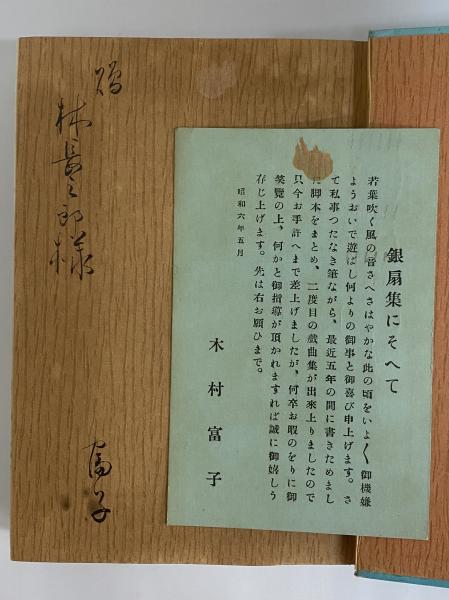 銀扇集にそへて
若葉吹く風の音さへさはやかな此の頃をいよ〱御機嫌
ようおいで遊ばし何よりの御事と御喜び申上げます。さ
て私事つたなき筆ながら、最近五年の間に書きためまし
た脚本をまとめ、二度目の戯曲集が出來上りましたので
只今お手許へまで差上げましたが、何卒お暇のをりに御
笑覽の上、何かと御指導が頂かれますれば誠に御嬉しう
存じ上げます。先は右お願ひまで。
昭和六年五月
木村富子
贈
林長三郎様
富子